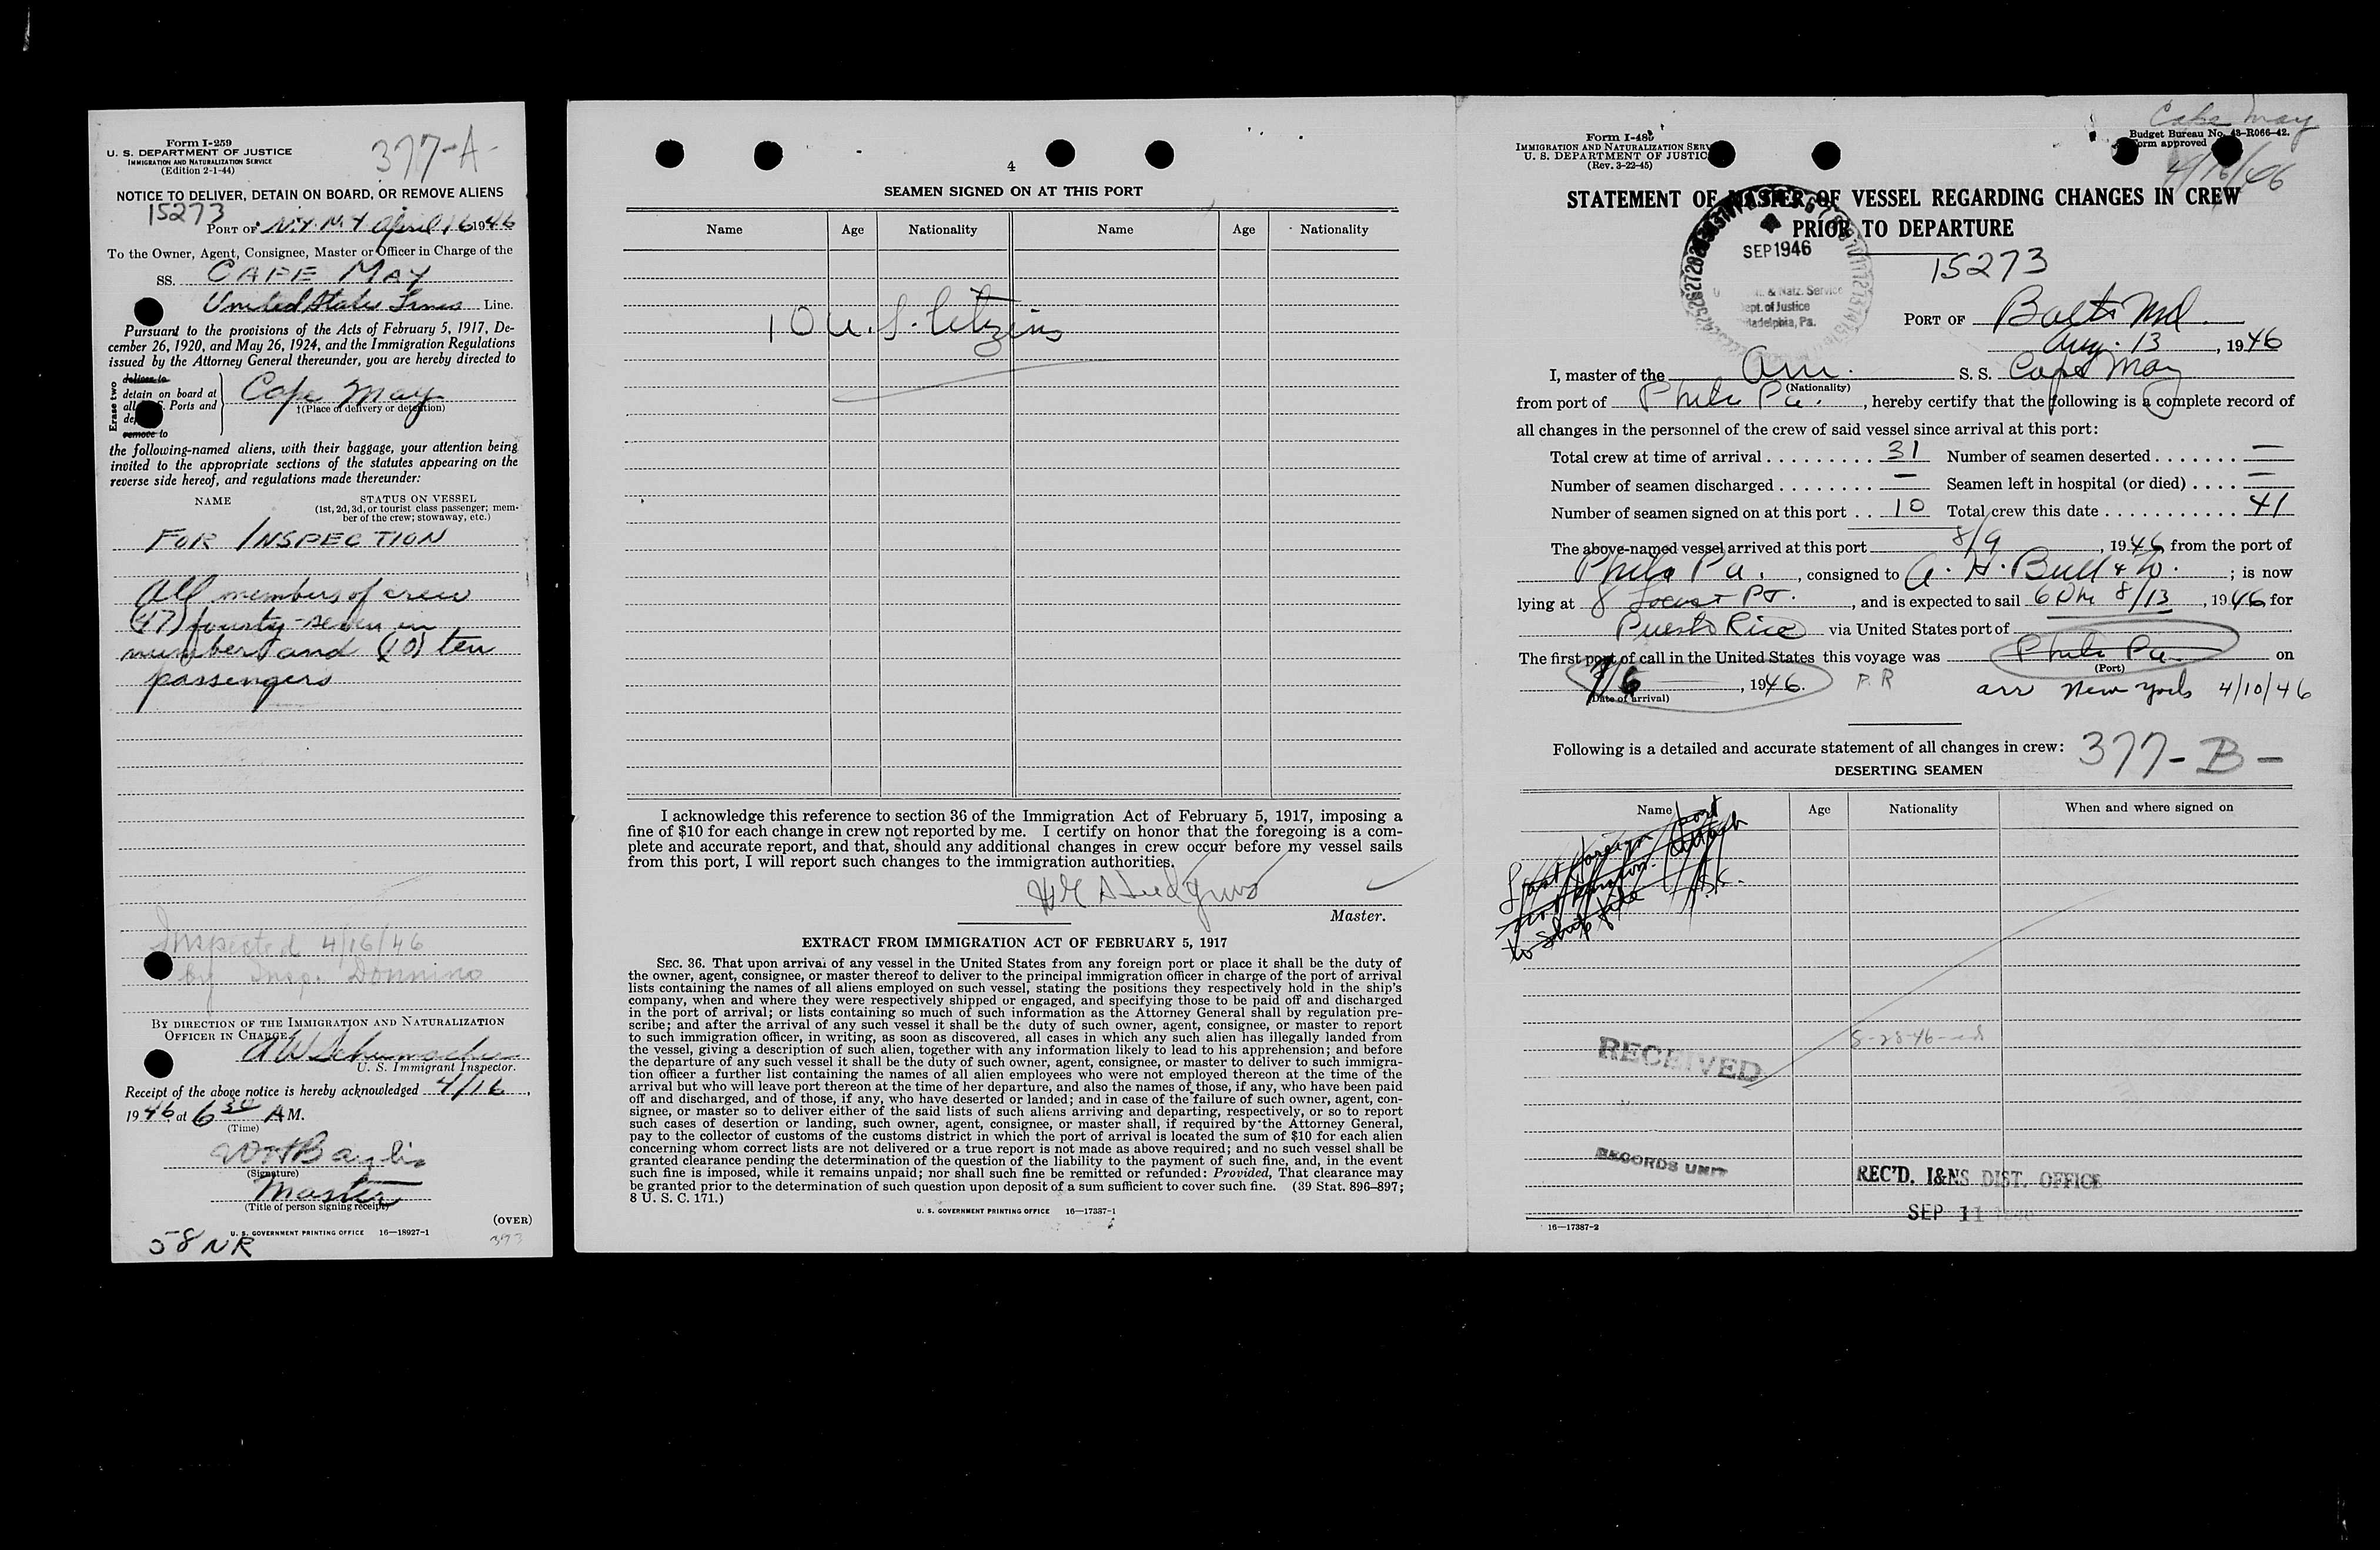 Form I-259
U. S. DEPARTMENT OF JUSTICE
IMMIGRATION AND NATURALIZATION SERVICE
(Edition 2-1-44)
377-A-
NOTICE TO DELIVER, DETAIN ON BOARD, OR REMOVE ALIENS
15273
PORT OF N.Y. N.Y April 16 1946
To the Owner, Agent, Consignee, Master or Officer in Charge of the
SS. CAPE MAY
United States Lines Line.
Pursuant to the provisions of the Acts of February 5, 1917, De-
cember 26, 1920, and May 26, 1924, and the Immigration Regulations
issued by the Attorney General thereunder, you are hereby directed to
Erase two
deliver to
detain on board at
all Ports and
remove to
Cape May
†(Place of delivery or detention)
the following-named aliens, with their baggage, your attention being
invited to the appropriate sections of the statutes appearing on the
reverse side hereof, and regulations made thereunder:
NAME STATUS ON VESSEL
(1st, 2d, 3d, or tourist class passenger; mem-
ber of the crew; stowaway, etc.)
FOR INSPECTION
All members of crew
(47) fourty-seven in
number and (10) ten
passengers
Inspected 4/16/46
by Insp. Donnino
BY DIRECTION OF THE IMMIGRATION AND NATURALIZATION
OFFICER IN CHARGE.
A W Schumacher
U. S. Immigrant Inspector.
Receipt of the above notice is hereby acknowledged 4/16,
1946, at 6 30 A M.
(Time)
W H Baylis
(Signature)
Master
(Title of person signing receipt)
(OVER)
U. S. GOVERNMENT PRINTING OFFICE 16—18927-1
58 NR
393
4
SEAMEN SIGNED ON AT THIS PORT
Name Age Nationality Name Age Nationality
10 U. S. Citizens
I acknowledge this reference to section 36 of the Immigration Act of February 5, 1917, imposing a
fine of $10 for each change in crew not reported by me. I certify on honor that the foregoing is a com-
plete and accurate report, and that, should any additional changes in crew occur before my vessel sails
from this port, I will report such changes to the immigration authorities.
Master.
EXTRACT FROM IMMIGRATION ACT OF FEBRUARY 5, 1917
SEC. 36. That upon arrival of any vessel in the United States from any foreign port or place it shall be the duty of
the owner, agent, consignee, or master thereof to deliver to the principal immigration officer in charge of the port of arrival
lists containing the names of all aliens employed on such vessel, stating the positions they respectively hold in the ship's
company, when and where they were respectively shipped or engaged, and specifying those to be paid off and discharged
in the port of arrival; or lists containing so much of such information as the Attorney General shall by regulation pre-
scribe; and after the arrival of any such vessel it shall be the duty of such owner, agent, consignee, or master to report
to such immigration officer, in writing, as soon as discovered, all cases in which any such alien has illegally landed from
the vessel, giving a description of such alien, together with any information likely to lead to his apprehension; and before
the departure of any such vessel it shall be the duty of such owner, agent, consignee, or master to deliver to such immigra-
tion officer a further list containing the names of all alien employees who were not employed thereon at the time of the
arrival but who will leave port thereon at the time of her departure, and also the names of those, if any, who have been paid
off and discharged, and of those, if any, who have deserted or landed; and in case of the failure of such owner, agent, con-
signee, or master so to deliver either of the said lists of such aliens arriving and departing, respectively, or so to report
such cases of desertion or landing, such owner, agent, consignee, or master shall, if required by the Attorney General,
pay to the collector of customs of the customs district in which the port of arrival is located the sum of $10 for each alien
concerning whom correct lists are not delivered or a true report is not made as above required; and no such vessel shall be
granted clearance pending the determination of the question of the liability to the payment of such fine, and, in the event
such fine is imposed, while it remains unpaid; nor shall such fine be remitted or refunded: Provided, That clearance may
be granted prior to the determination of such question upon deposit of a sum sufficient to cover such fine. (39 Stat. 896–897;
8 U. S. C. 171.)
U. S. GOVERNMENT PRINTING OFFICE 16—17387-1
Cape May
Form I-48
IMMIGRATION AND NATURALIZATION SERV
U. S. DEPARTMENT OF JUSTIC
(Rev. 3-22-45)
Budget Bureau No. 43-R066-42.
orm approved
4/16/46
STATEMENT OF MASTER OF VESSEL REGARDING CHANGES IN CREW
PRIOR TO DEPARTURE
SEP 1946
& Natz. Service
ept. of Justice
adelphia, Pa.
15273
PORT OF Balto Md.
Aug. 13, 1946
I, master of the Am. S. S. Cape May
(Nationality)
from port of Phila Pa., hereby certify that the following is a complete record of
all changes in the personnel of the crew of said vessel since arrival at this port:
Total crew at time of arrival 31 Number of seamen deserted —
Number of seamen discharged — Seamen left in hospital (or died) —
Number of seamen signed on at this port 10 Total crew this date 41
The above-named vessel arrived at this port 8/9, 1946, from the port of
Phila Pa., consigned to A. H. Bull & Co.; is now
lying at 8 Locust Pt., and is expected to sail 6 PM 8/13, 1946 for
Puerto Rico via United States port of
The first port of call in the United States this voyage was Phila Pa on
(Port)
1946.
(Date of arrival)
P. R
arr New York 4/10/46
Following is a detailed and accurate statement of all changes in crew:
377-B-
DESERTING SEAMEN
Name Age Nationality When and where signed on
Last foreign port
to ship file
RECEIVED
8-28-46
RECORDS UNIT
REC'D. I&NS DIST. OFFICE
SEP 11
16—17387-2